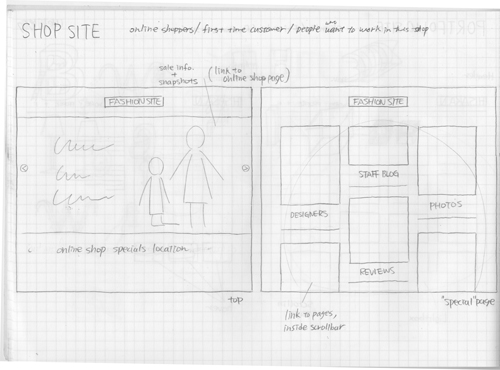 SHOP SITE
online shoppers / first time customer / people who want to work in this shop
sale info.
+
snapshots
(link to
online shop page)
FASHION SITE
online shop specials location
top
FASHION SITE
STAFF BLOG
DESIGNERS
PHOTOS
REVIEWS
link to pages,
inside scrollbar
"special" page